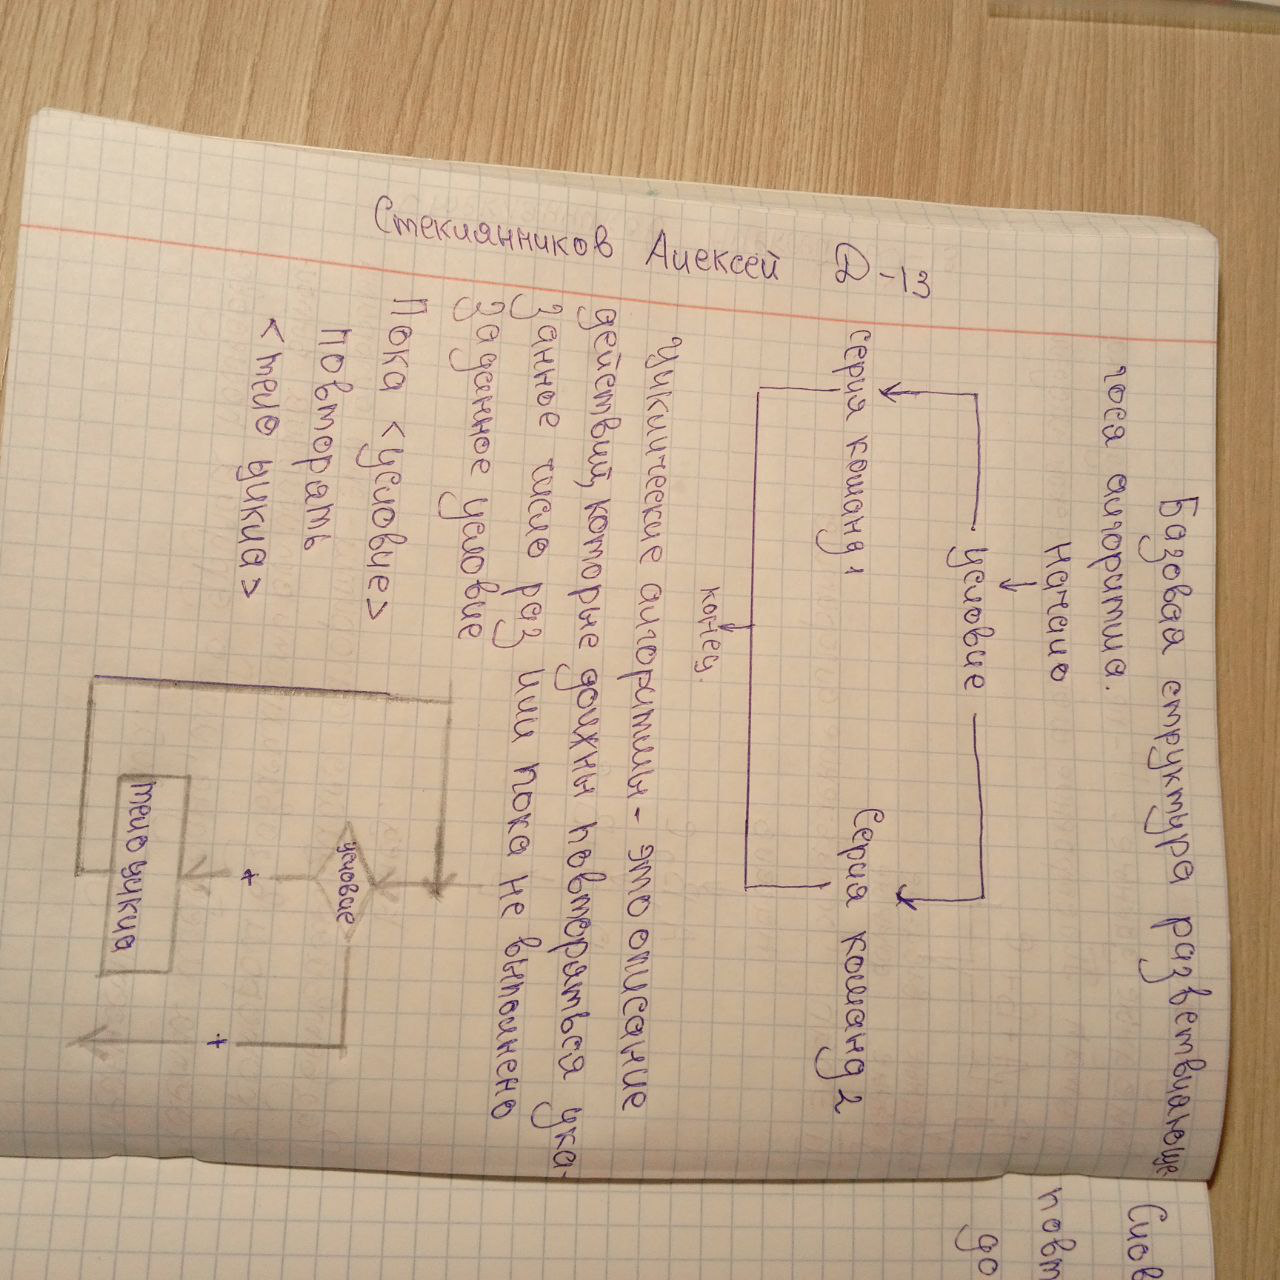 Стеклянников Алексей Д-13
Базовая структура разветвляюще
гося алгоритма.
начало
условие
серия команд 1
Серия команд 2
конец.
Циклические алгоритмы - это описание
действий, которые должны повторяться ука-
занное число раз или пока не выполнено
заданное условие
Пока <условие>
повторять
<тело цикла>
условие
+
+
тело цикла
Слов
повт
до